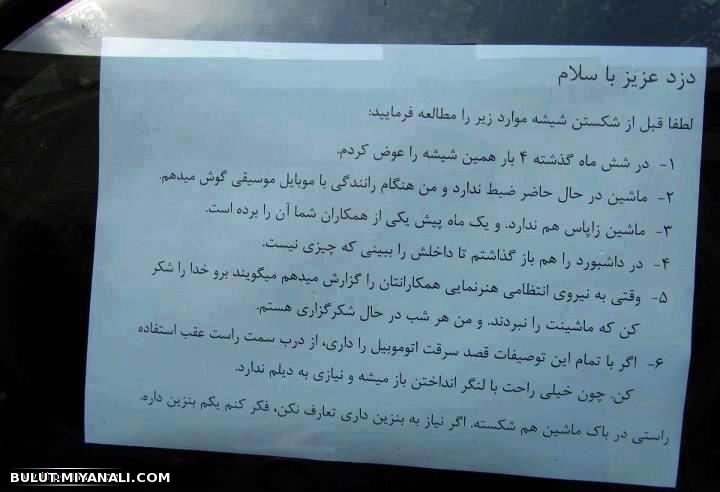 دزد عزیز با سلام
لطفا قبل از شکستن شیشه موارد زیر را مطالعه فرمایید:
۱- در شش ماه گذشته ۴ بار همین شیشه را عوض کردم.
۲- ماشین در حال حاضر ضبط ندارد و من هنگام رانندگی با موبایل موسیقی گوش میدهم.
۳- ماشین زاپاس هم ندارد. و یک ماه پیش یکی از همکاران شما آن را برده است.
۴- در داشبورد را هم باز گذاشتم تا داخلش را ببینی که چیزی نیست.
۵- وقتی به نیروی انتظامی هنرنمایی همکارانتان را گزارش میدهم میگویند برو خدا را شکر
کن که ماشینت را نبردند. و من هر شب در حال شکرگزاری هستم.
۶- اگر با تمام این توصیفات قصد سرقت اتوموبیل را داری، از درب سمت راست عقب استفاده
کن. چون خیلی راحت با لنگر انداختن باز میشه و نیازی به دیلم ندارد.
راستی در باک ماشین هم شکسته. اگر نیاز به بنزین داری تعارف نکن، فکر کنم یکم بنزین داره.
BULUT.MIYANALI.COM